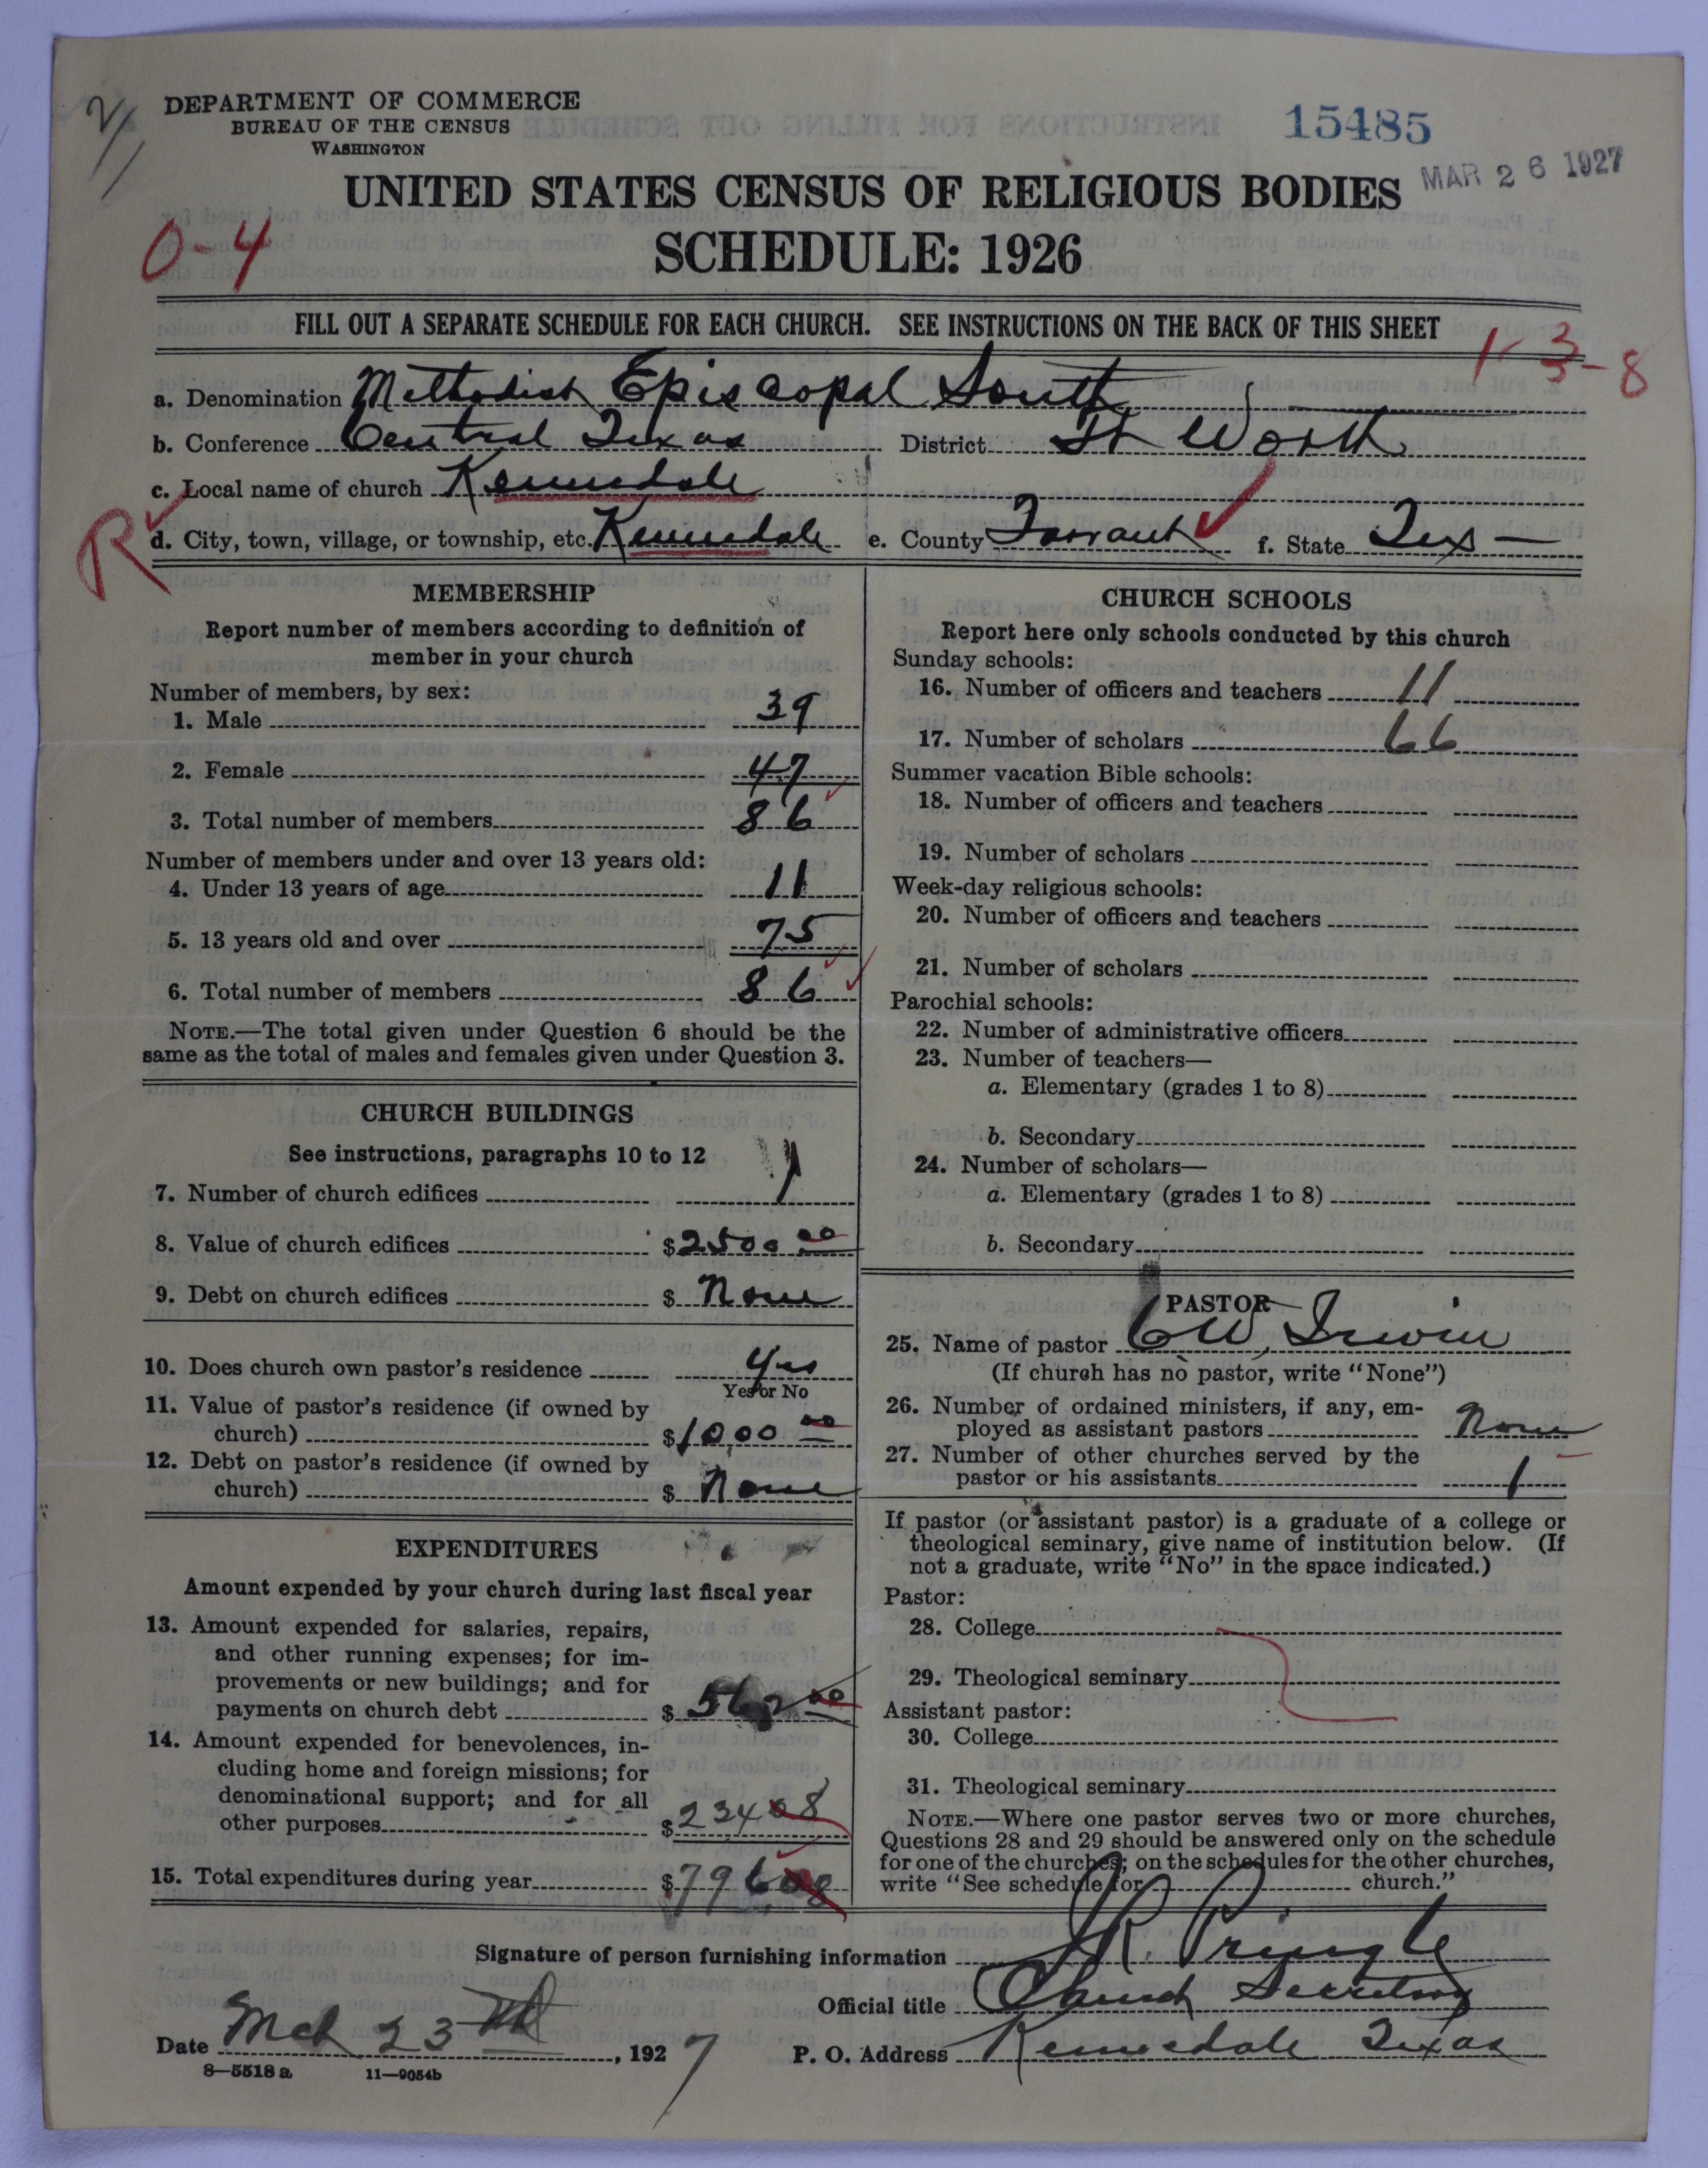 2/1
DEPARTMENT OF COMMERCE
BUREAU OF THE CENSUS
WASHINGTON
15485
MAR 26 1927
UNITED STATES CENSUS OF RELIGIOUS BODIES
SCHEDULE: 1926
0-4
FILL OUT A SEPARATE SCHEDULE FOR EACH CHURCH. SEE INSTRUCTIONS ON THE BACK OF THIS SHEET
1-3-8
a. Denomination Methodist Episcopal South
b. Conference Central Texas District Ft Worth
c. Local name of church Kennedale
R
d. City, town, village, or township, etc. Kennedale e. County Tarrant f. State Tex
MEMBERSHIP
Report number of members according to definition of
member in your church
Number of members, by sex:
1. Male 39
2. Female 47
3. Total number of members 86
Number of members under and over 13 years old:
4. Under 13 years of age 11
5. 13 years old and over 75
6. Total number of members 86
NOTE.—The total given under Question 6 should be the
same as the total of males and females given under Question 3.
CHURCH BUILDINGS
See instructions, paragraphs 10 to 12
7. Number of church edifices 1
8. Value of church edifices $2500 00
9. Debt on church edifices $ None
10. Does church own pastor's residence Yes
Yes or No
11. Value of pastor's residence (if owned by
church) $1000 00
12. Debt on pastor's residence (if owned by
church) $ None
EXPENDITURES
Amount expended by your church during last fiscal year
13. Amount expended for salaries, repairs,
and other running expenses; for im-
provements or new buildings; and for
payments on church debt $ 562 00
14. Amount expended for benevolences, in-
cluding home and foreign missions; for
denominational support; and for all
other purposes $234 08
15. Total expenditures during year $796 08
CHURCH SCHOOLS
Report here only schools conducted by this church
Sunday schools:
16. Number of officers and teachers 11
17. Number of scholars 66
Summer vacation Bible schools:
18. Number of officers and teachers
19. Number of scholars
Week-day religious schools:
20. Number of officers and teachers
21. Number of scholars
Parochial schools:
22. Number of administrative officers
23. Number of teachers—
a. Elementary (grades 1 to 8)
b. Secondary
24. Number of scholars—
a. Elementary (grades 1 to 8)
b. Secondary
PASTOR
25. Name of pastor C W, Irwin
(If church has no pastor, write "None")
26. Number of ordained ministers, if any, em-
ployed as assistant pastors None
27. Number of other churches served by the
pastor or his assistants 1
If pastor (or assistant pastor) is a graduate of a college or
theological seminary, give name of institution below. (If
not a graduate, write "No" in the space indicated.)
Pastor:
28. College
29. Theological seminary
Assistant pastor:
30. College
31. Theological seminary
NOTE.—Where one pastor serves two or more churches,
Questions 28 and 29 should be answered only on the schedule
for one of the churches; on the schedules for the other churches,
write "See schedule for church."
Signature of person furnishing information J R. Pringle
Official title Church Secretary
Date Mch 23rd, 1927 P. O. Address Kennedale Texas
8—5518 a 11—9054b